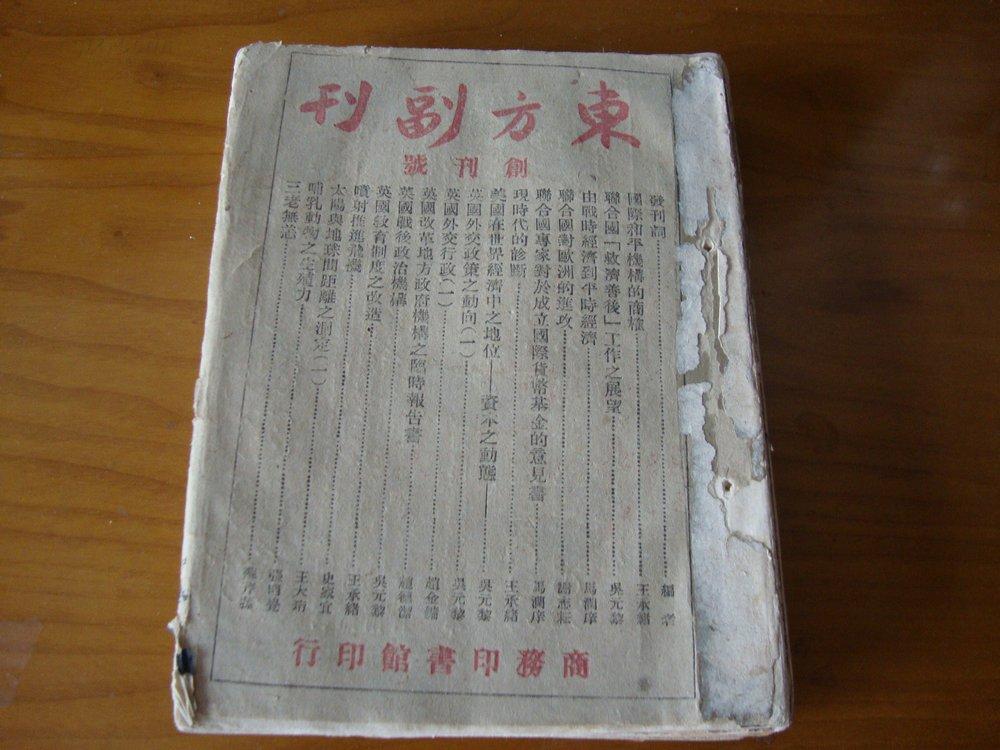 東方副刊
創刊號
發刊詞……編者
國際和平機構的商榷……王承緒
聯合國「救濟善後」工作之展望……吳元黎
由戰時經濟到平時經濟……馬潤庠
聯合國對歐洲的進攻……謝志耘
聯合國專家對於成立國際貨幣基金的意見書……馬潤庠
現時代的診斷……王承緒
美國在世界經濟中之地位——資本之動態——……吳元黎
英國外交政策之動向(一)……吳元黎
英國外交行政(一)……趙金鏞
英國改革地方政府機構之臨時報告書……趙德潔
英國戰後政治機構……吳元黎
英國教育制度之改造……王承緒
噴射推進飛機……史家宜
太陽與地球間距離之測定(一)……王大珩
哺乳動物之生殖力……張明覺
三老無恙……
商務印書館印行